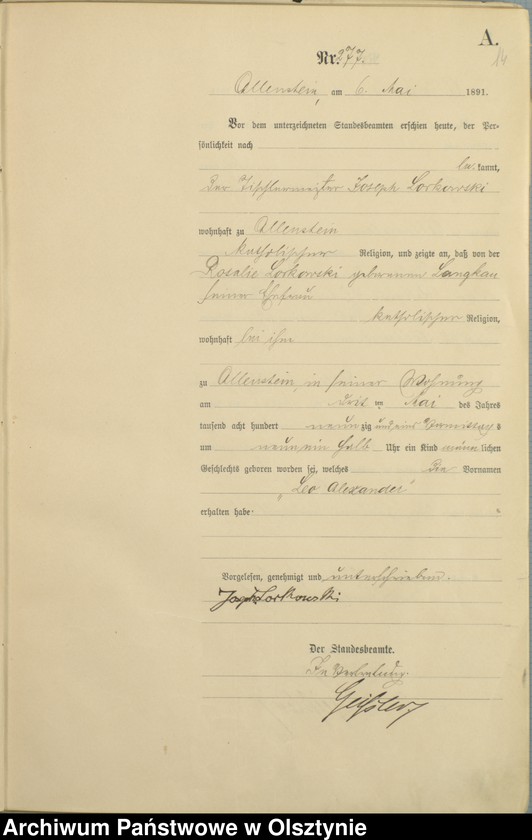 A.
14
Nr. 277.
Allenstein, am 6. Mai 1891.
Vor dem unterzeichneten Standesbeamten erschien heute, der Per-
sönlichkeit nach
be kannt,
der Tischlermeister Joseph Lorkowski
wohnhaft zu Allenstein
katholischer Religion, und zeigte an, daß von der
Rosalie Lorkowski geborenen Langkau
seiner Ehefrau
katholischer Religion,
wohnhaft bei ihm
zu Allenstein, in seiner Wohnung
am Mai des Jahres
tausend acht hundert neun zig und eins s
um neun ein halb Uhr ein Kind männ lichen
Geschlechts geboren worden sei, welches die Vornamen
„Leo Alexander“
erhalten habe
Vorgelesen, genehmigt und unterschrieben.
Joseph Lorkowski
Der Standesbeamte.
In Vertretung.
Archiwum Państwowe w Olsztynie